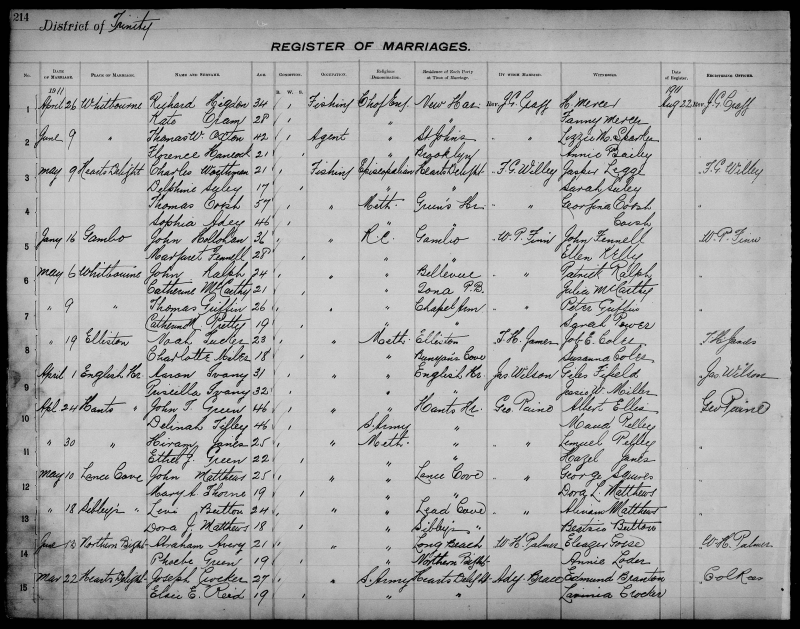 214
District of Trinity
REGISTER OF MARRIAGES.
No. DATE OF MARRIAGE. PLACE OF MARRIAGE. NAME AND SURNAME. AGE CONDITION. OCCUPATION. Religious Denomination. Residence of Each Party at Time of Marriage. BY WHOM MARRIED. WITNESSES. Date of Register. REGISTERING OFFICER.
1911 B. W. S. 1911
1 April 26 Whitbourne Richard Higdon 34 " Fishing Ch of Eng. New Har. Rev. J.G. H. Mercer Aug 22 Rev J.G.
Kate Oram 28 " " " Fanny Mercer
2 June 9 " Thomas W. 42 " Agent " St Johns " " Lizzie M. "
Florence 21 " " Brooklyn Annie Bailey
3 May 9 Hearts Delight Charles Worthman 21 " Fishing Episcopalian Hearts Delight " F.G. Willey Jasper Legge " F.G. Willey
Delphine 17 " " " Sarah
4 Thomas Corsh 57 " " Meth. Green's Hr. " " Georgina Corsh "
Sophia 46 " " " Corsh
5 Jany 16 Gambo John Hollohan 36 " " R.C. Gambo " W.P. Finn John Fennell " W.P. Finn
Margaret Fennell 28 " " " Ellen Kelly
6 May 6 Whitbourne John Ralph 24 " " " Bellevue " " Patrick Ralph "
Catherine McCarthy 21 " " Iona P.B. Julia McCarthy
7 " 9 " Thomas Griffin 26 " " " Chapel Arm " " Peter Griffin "
Catherine Pretty 19 " " " Sarah Power
8 " 19 Elliston Noah Tucker 23 " " Meth. Elliston " T.H. James Job E. Coles " T.H. James
Charlotte 18 " " Bunyan's Cove Susanna Coles
9 April 1 English Hr Aaron Ivany 31 " " " English Hr. " Jas Wilson Giles Fifield " Jas Wilson
Priscilla Ivany 32 " " " Jessie W. Miller
10 Apl 24 Hants " John T. Green 46 " " " Hants Hr. " Geo. Paine Albert Ellis " Geo Paine
Delinah 46 " S. Army " Maud Pelley
11 " 30 " Hiram Janes 25 " " Meth. " " " Lemuel Pelley "
Ethel J. Green 22 " " " Hazel Janes
12 May 10 Lance Cove John Matthews 25 " " " Lance Cove " " George Squires "
Mary S. Thorne 19 " " " Dora L. Matthews
13 " 18 Sibley's " Levi Button 24 " " " Lead Cove " " Matthews "
Dora J. Matthews 18 " " Sibley's " Beatrice Button
14 June 13 Northern Bight Abraham Avery 21 " " " Long Beach " W.H. Palmer Eleazer " W.H. Palmer
Phoebe Green 19 " " Northern Bight Annie Loder
15 Mar 22 Hearts Delight Joseph Crocker 27 " " S. Army Hearts Delight " Adj. Brace Edmund " Col Rees
Elsie E. Reid 19 " " " Crocker